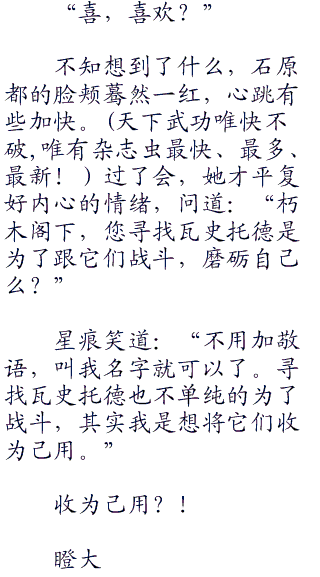 “喜，喜欢？”
不知想到了什么，石原
都的脸颊蓦然一红，心跳有
些加快。(天下武功唯快不
破,唯有杂志虫最快、最多、
最新！) 过了会，她才平复
好内心的情绪，问道：“朽
木阁下，您寻找瓦史托德是
为了跟它们战斗，磨砺自己
么？”
星痕笑道：“不用加敬
语，叫我名字就可以了。寻
找瓦史托德也不单纯的为了
战斗，其实我是想将它们收
为己用。”
收为己用？！
瞪大